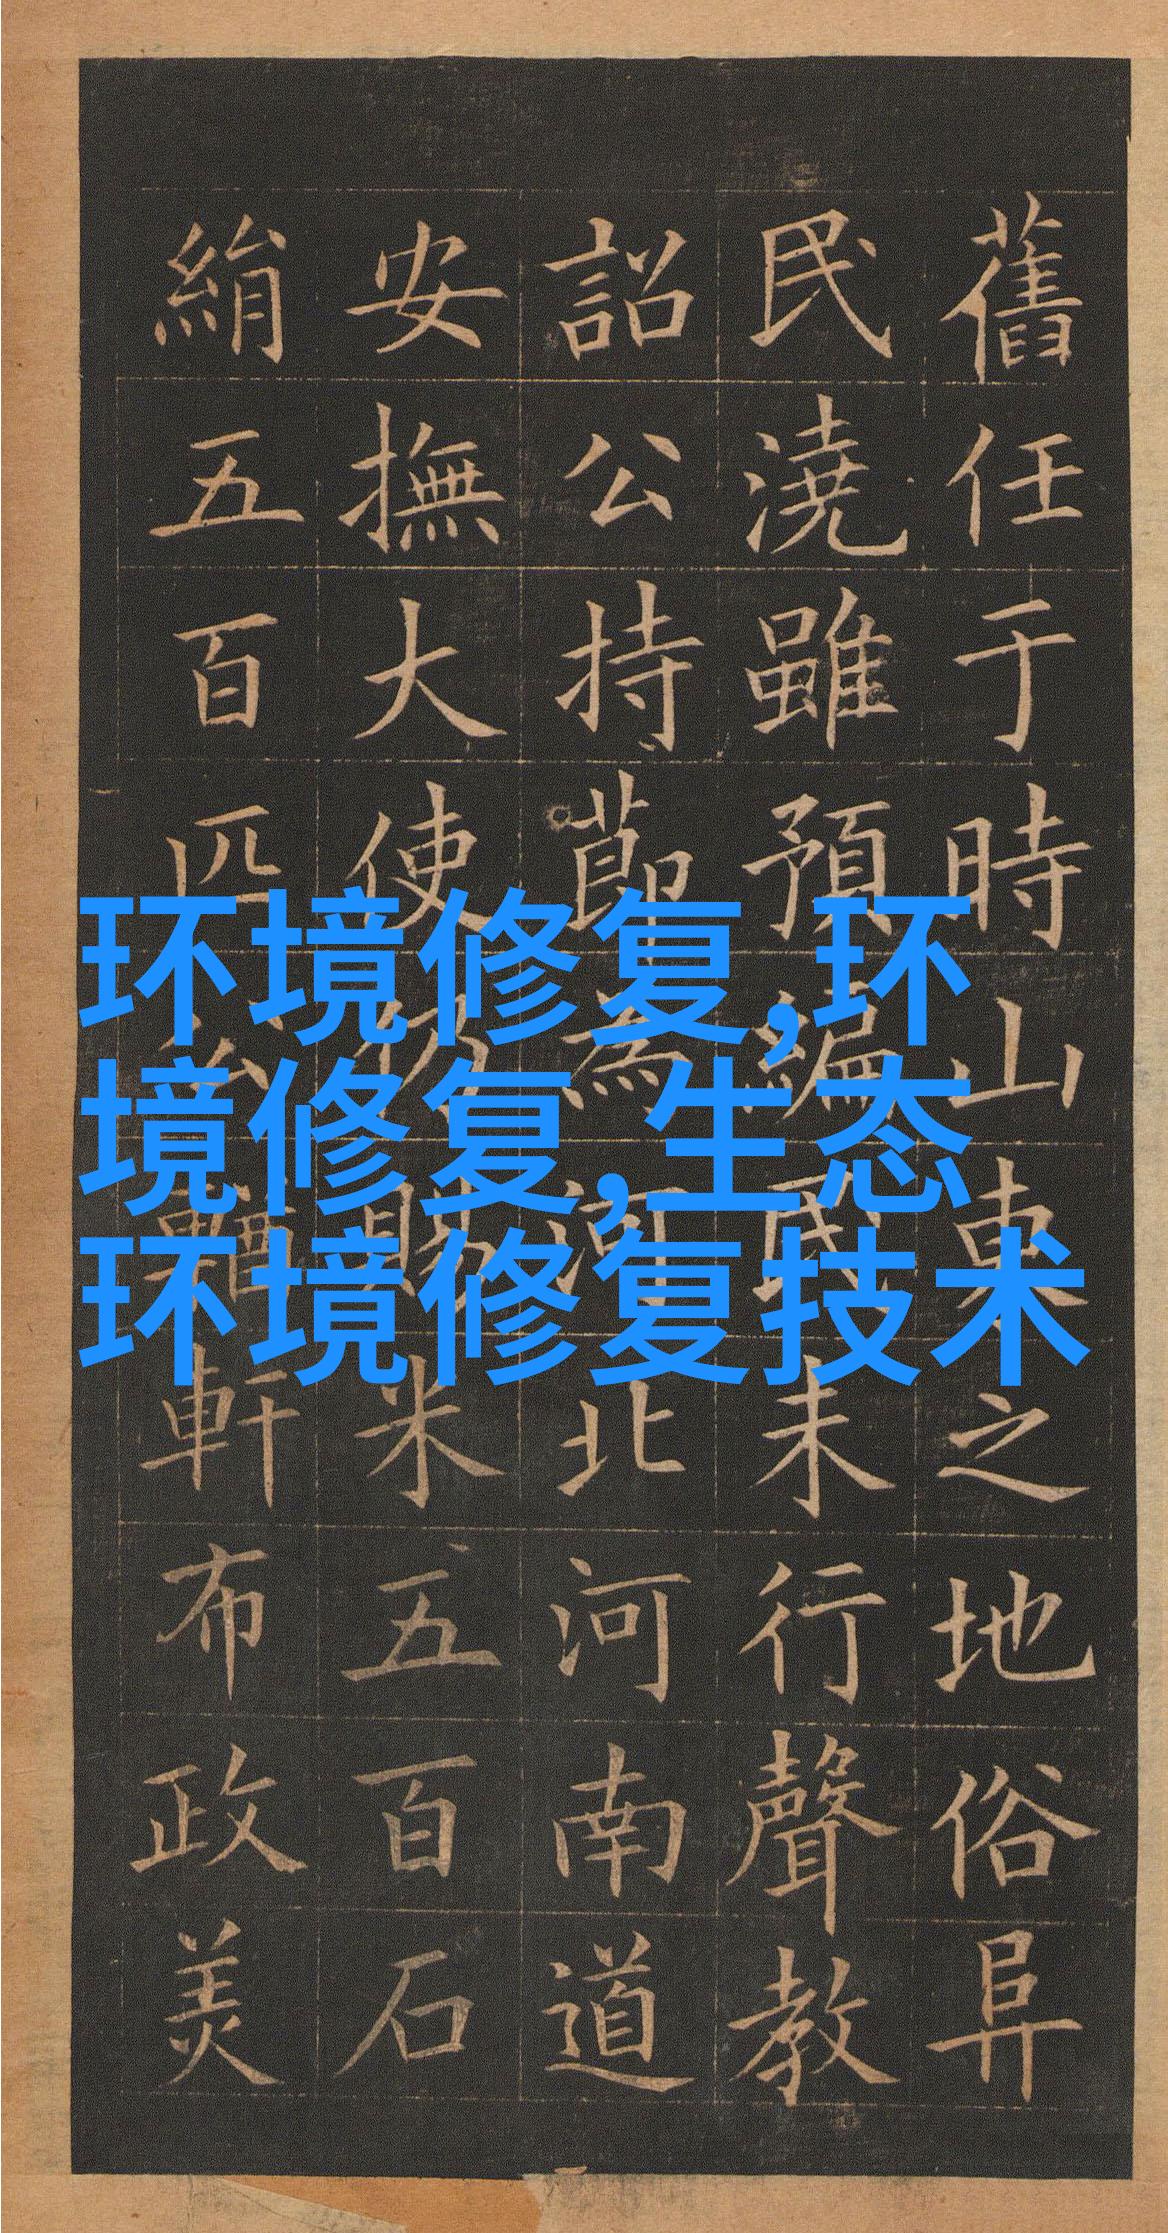 舊任于時山東之地俗阜
民澆雖預編民未行聲教
詔公持節為河北河南道
安撫大使仍賜米五百石
絹五百匹軒布政美
环境修复,环
境修复,生态
环境修复技术